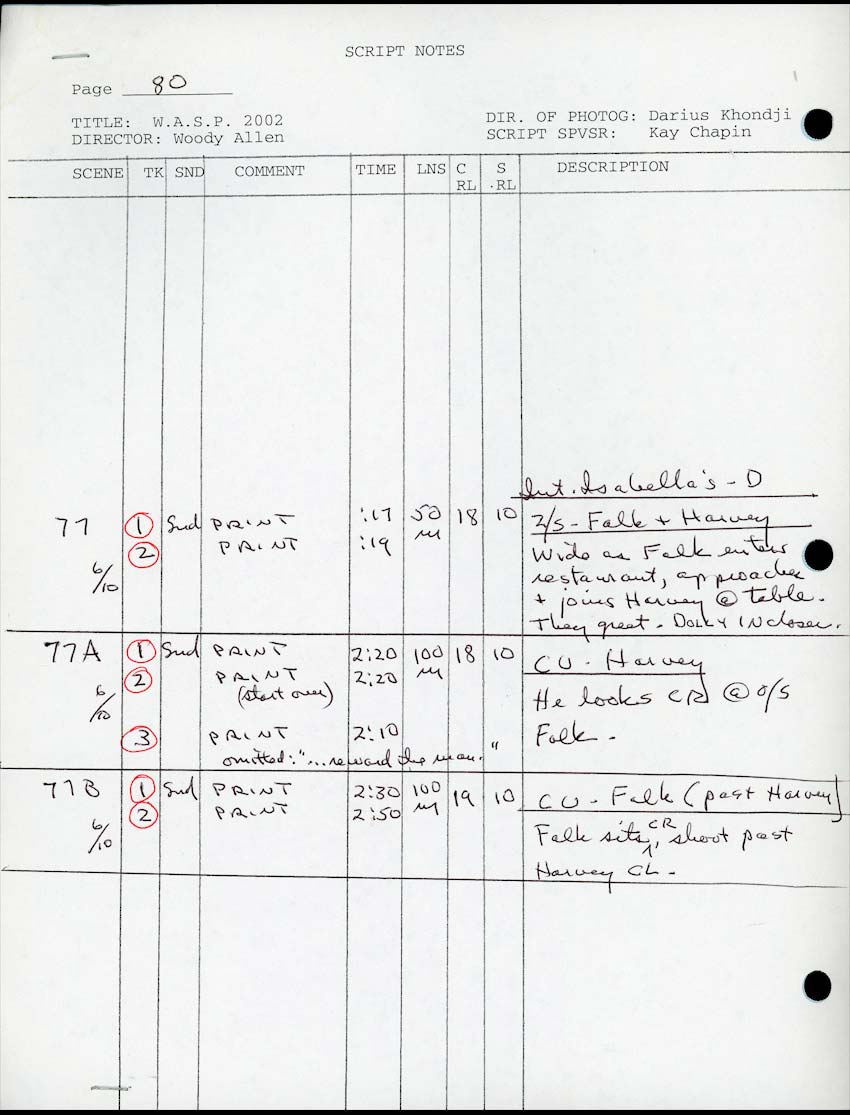 SCRIPT NOTES
Page 80
TITLE: W.A.S.P. 2002
DIRECTOR: Woody Allen
DIR. OF PHOTOG: Darius Khondji
SCRIPT SPVSR: Kay Chapin
SCENE TK SND COMMENT TIME LNS C RL S .RL DESCRIPTION
Int. Isabella's - D
77 1 Snd PRINT :17 50 M 18 10 2/S - Falk + Harvey
2 PRINT :19 Wide as Falk enters
6/10 restaurant, approaches
+ joins Harvey @ table.
They greet. DOLLY IN closer.
77A 1 Snd PRINT 2:20 100 M 18 10 CU - Harvey
2 PRINT 2:20
(start over)
6/10 He looks CR @ o/s
3 PRINT 2:10 Falk.
omitted: "...reward the man."
77B 1 Snd PRINT 2:30 100 M 19 10 CU - Falk (past Harvey)
2 PRINT 2:50
6/10 Falk sits CR, shoot past
Harvey CL.